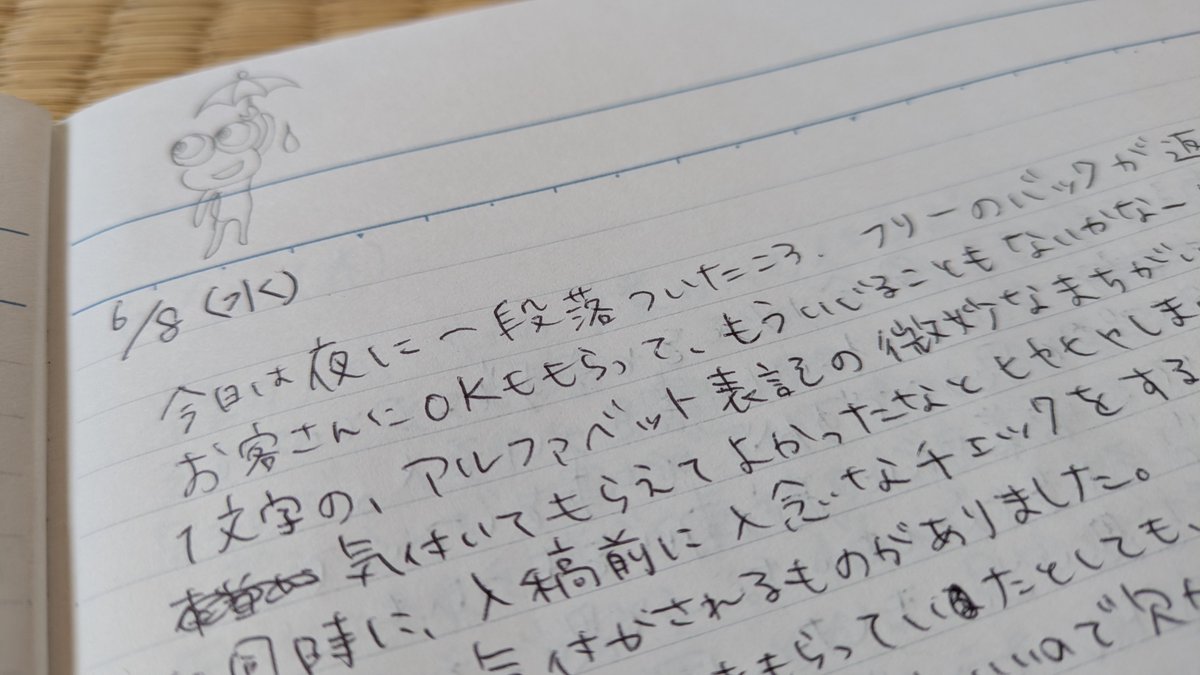 6/8(水)
今日は夜に一段落ついたところ. フリーのバックが返
お客さんにOKももらって、もういじることもないかなー
1文字の、アルファベット表記の微妙なまちがい
気付いてもらえてよかったなとヒヤヒヤしま
同時に、入稿前に入念なチェックをする
気付かされるものがありました。
もらっていたとしても、
いいので欠